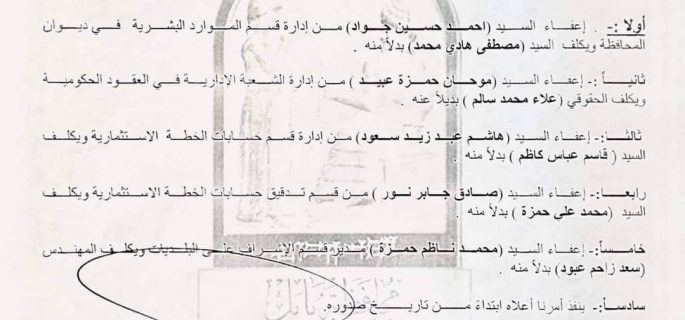 أولاً :- . إعفاء السيد (احمد حسين جواد) من إدارة قسم الموارد البشرية في ديوان
المحافظة ويكلف السيد (مصطفى هادي محمد) بدلاً منه .
ثانياً :- إعفاء السيد (موحان حمزة عبيد ) من إدارة الشعبة الإدارية في العقود الحكومية
ويكلف الحقوقي (علاء محمد سالم ) بديلاً عنه .
ثالثا:- إعفاء السيد (هاشم عبد زيد سعود) من إدارة قسم حسابات الخطة الاستثمارية ويكلف
السيد ( قاسم عباس كاظم ) بدلاً منه .
رابعا:- إعفاء السيد (صادق جابر نور ) من قسم تدقيق حسابات الخطة الاستثمارية ويكلف
السيد (محمد علي حمزة ) بدلاً منه .
خامساً:- إعفاء السيد (محمد ناظم حمزة ) مدير قسم الإشراف على البلديات ويكلف المهندس
(سعد زاحم عبود) بدلاً منه .
سادساً:- ينفذ أمرنا أعلاه ابتداءً من تاريخ صدوره.
محافظة بابل